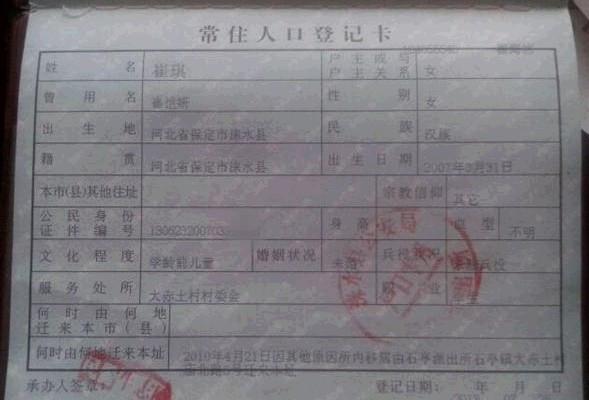 常住人口登记卡
姓名 崔琪 户主或与户主关系 女
曾用名 性别 女
出生地 河北省保定市涞水县 民族 汉族
籍贯 河北省保定市涞水县 出生日期 2007年3月31日
本市(县)其他住址 宗教信仰 其它
公民身份证件编号 身高 血型 不明
文化程度 学龄前儿童 婚姻状况 未婚 兵役状况
服务处所 大赤土村村委会 职业
何时由何地迁来本市(县)
何时由何地迁来本址 2010年4月21日因其他原因所内移居由石亭派出所石亭镇大赤土村
迁来本址
承办人签章: 登记日期: 年 月 日